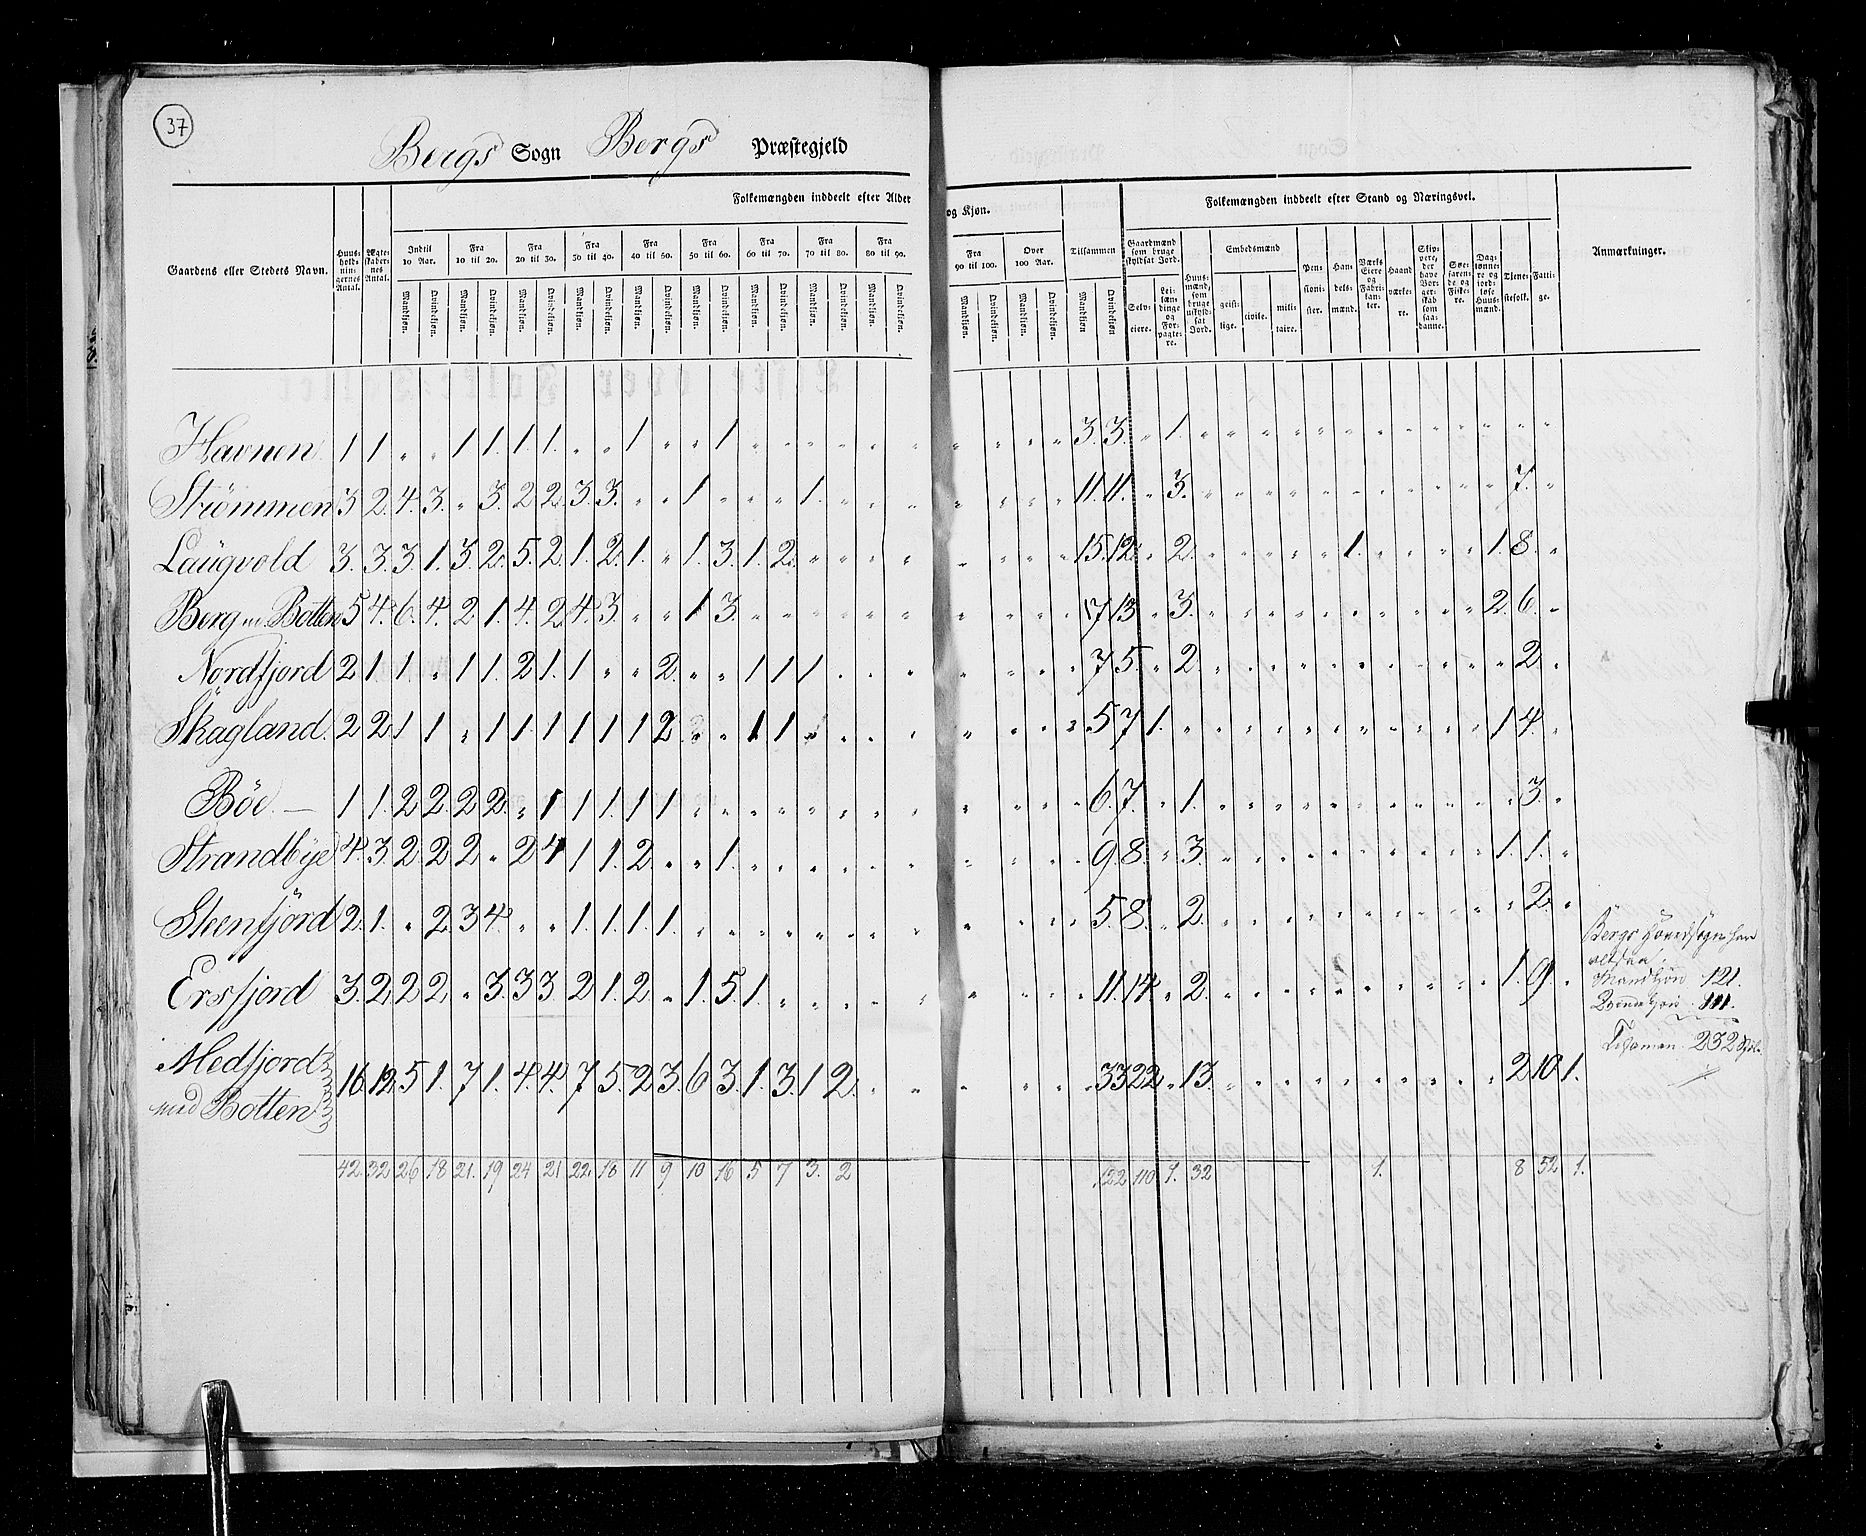 37
Bergs Sogn Bergs Præstegjeld
Folkemængden inddeelt efter Alder og Kjøn.
Folkemængden inddeelt efter Stand og Næringsvei.
Gaardens eller Stedets Navn. Huus-holdningernes Antal. Ægteskabernes Antal. Indtil 10 Aar. Fra 10 til 20. Fra 20 til 30. Fra 30 til 40. Fra 40 til 50. Fra 50 til 60. Fra 60 til 70. Fra 70 til 80. Fra 80 til 90. Fra 90 til 100. Over 100 Aar. Tilsammen
Gaardmænd som bruge skyldsat Jord. Selveiere. Leilændinge og Forpagtere. Huusmænd, som bruge uskyldsat Jord. Embedsmænd geistlige. civile. militaire. Pensionister. Handelsmænd. Værks Eiere og Fabrikanter. Haandværkere. Skippere, der have Borgerskab som saadanne. Søefarende og Fiskere. Daglønnere og jordløse Huusmænd. Tjenestefolk. Fattige. Anmærkninger.
Mandkjøn. Qvindekjøn. Mandkjøn. Qvindekjøn. Mandkjøn. Qvindekjøn. Mandkjøn. Qvindekjøn. Mandkjøn. Qvindekjøn. Mandkjøn. Qvindekjøn. Mandkjøn. Qvindekjøn. Mandkjøn. Qvindekjøn. Mandkjøn. Qvindekjøn. Mandkjøn. Qvindekjøn. Mandkjøn. Qvindekjøn. Mandkjøn Qvindekjøn
Havnen 1 1 " " 1 1. 1. 1. " " 1 " " 1 " " " " " " " " " " 3. 3. " 1. " " " " " " " " " " " " "
Strömmen 3 2. 4. 3. " 3. 2 2. 3. 3. " " 1 " " " 1. " " " " " " " 11. 11. " 3. " " " " " " " " " " " 7. "
Laugvold 3. 3. 3 1. 3. 2. 5. 2. 1. 2. 1. " 1. 3. 1. 2. " " " " " " " " 15. 12. " 2. " " " " " 1. " " " " 1. 8. "
Berg m. Botten 5 4. 6. 4. 2 1. 4. 2 4. 3. " " 1 3. " " " " " " " " " " 17 13. " 3. " " " " " " " " " " 2. 6. "
Nordfjord 2 1 1. " 1 1. 2 1. 1 " " 2. " " 1 1 1 " " " " " " " 7. 5. " 2. " " " " " " " " " " " 2. "
Skagland. 2 2 1 1 " 1 1. 1 1 1 1 2 " " 1 1 " " " " " " " " 5. 7. 1. " " " " " " " " " " " 1 4. "
Böe — 1 1. 2 2. 2 2. " 1 1 1. 1 1 " " " " " " " " " " " " 6. 7. " 1. " " " " " " " " " " " 3. "
Strandbÿe 4. 3 2 2 2 " 2 4 1 1. 2 " " 1. " " " " " " " " " " 9. 8. " 3. " " " " " " " " " " 1. 1. "
Steenfjord 2. 1. " 2. 3 4. " " 1. 1. 1. 1. " " " " " " " " " " " " 5. 8. " 2. " " " " " " " " " " " 2. "
Ersfjord 3. 2. 2 2. " 3. 3 3. 2 1. 2. " 1. 5. 1. " " " " " " " " " 11. 14. " 2. " " " " " " " " " " 1. 9. "
Medfjord med Botten 16. 12. 5 1. 7 1. 4. 4. 7 5. 2 3. 6 3. 1. 3. 1 2. " " " " " " 33 22. " 13. " " " " " " " " " " 2 10 1.
42. 32 26 18 21. 19 24 21 22. 18 11 9 10 16 5 7 3. 2 122 110 1. 32 1. 8 52 1.
Bergs Hovedsogn har
altsaa
Mandkjön 121.
Qvindekjön 111.
Tilsamen 232